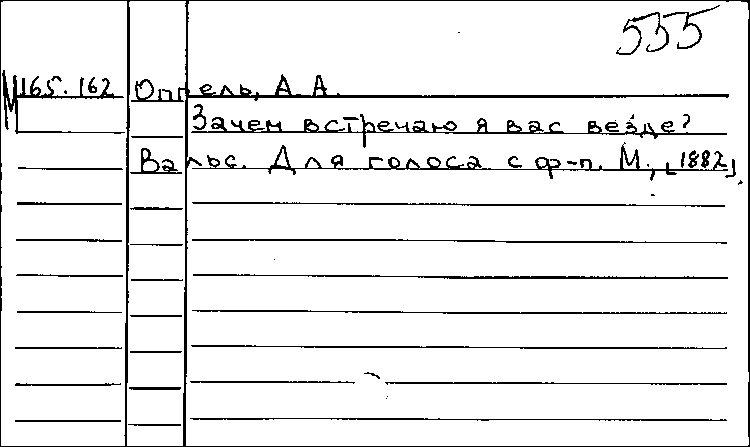 555
М165.162 Оппель, А. А.
Зачем встречаю я вас везде?
Вальс. Для голоса с ф-п. М., [1882].